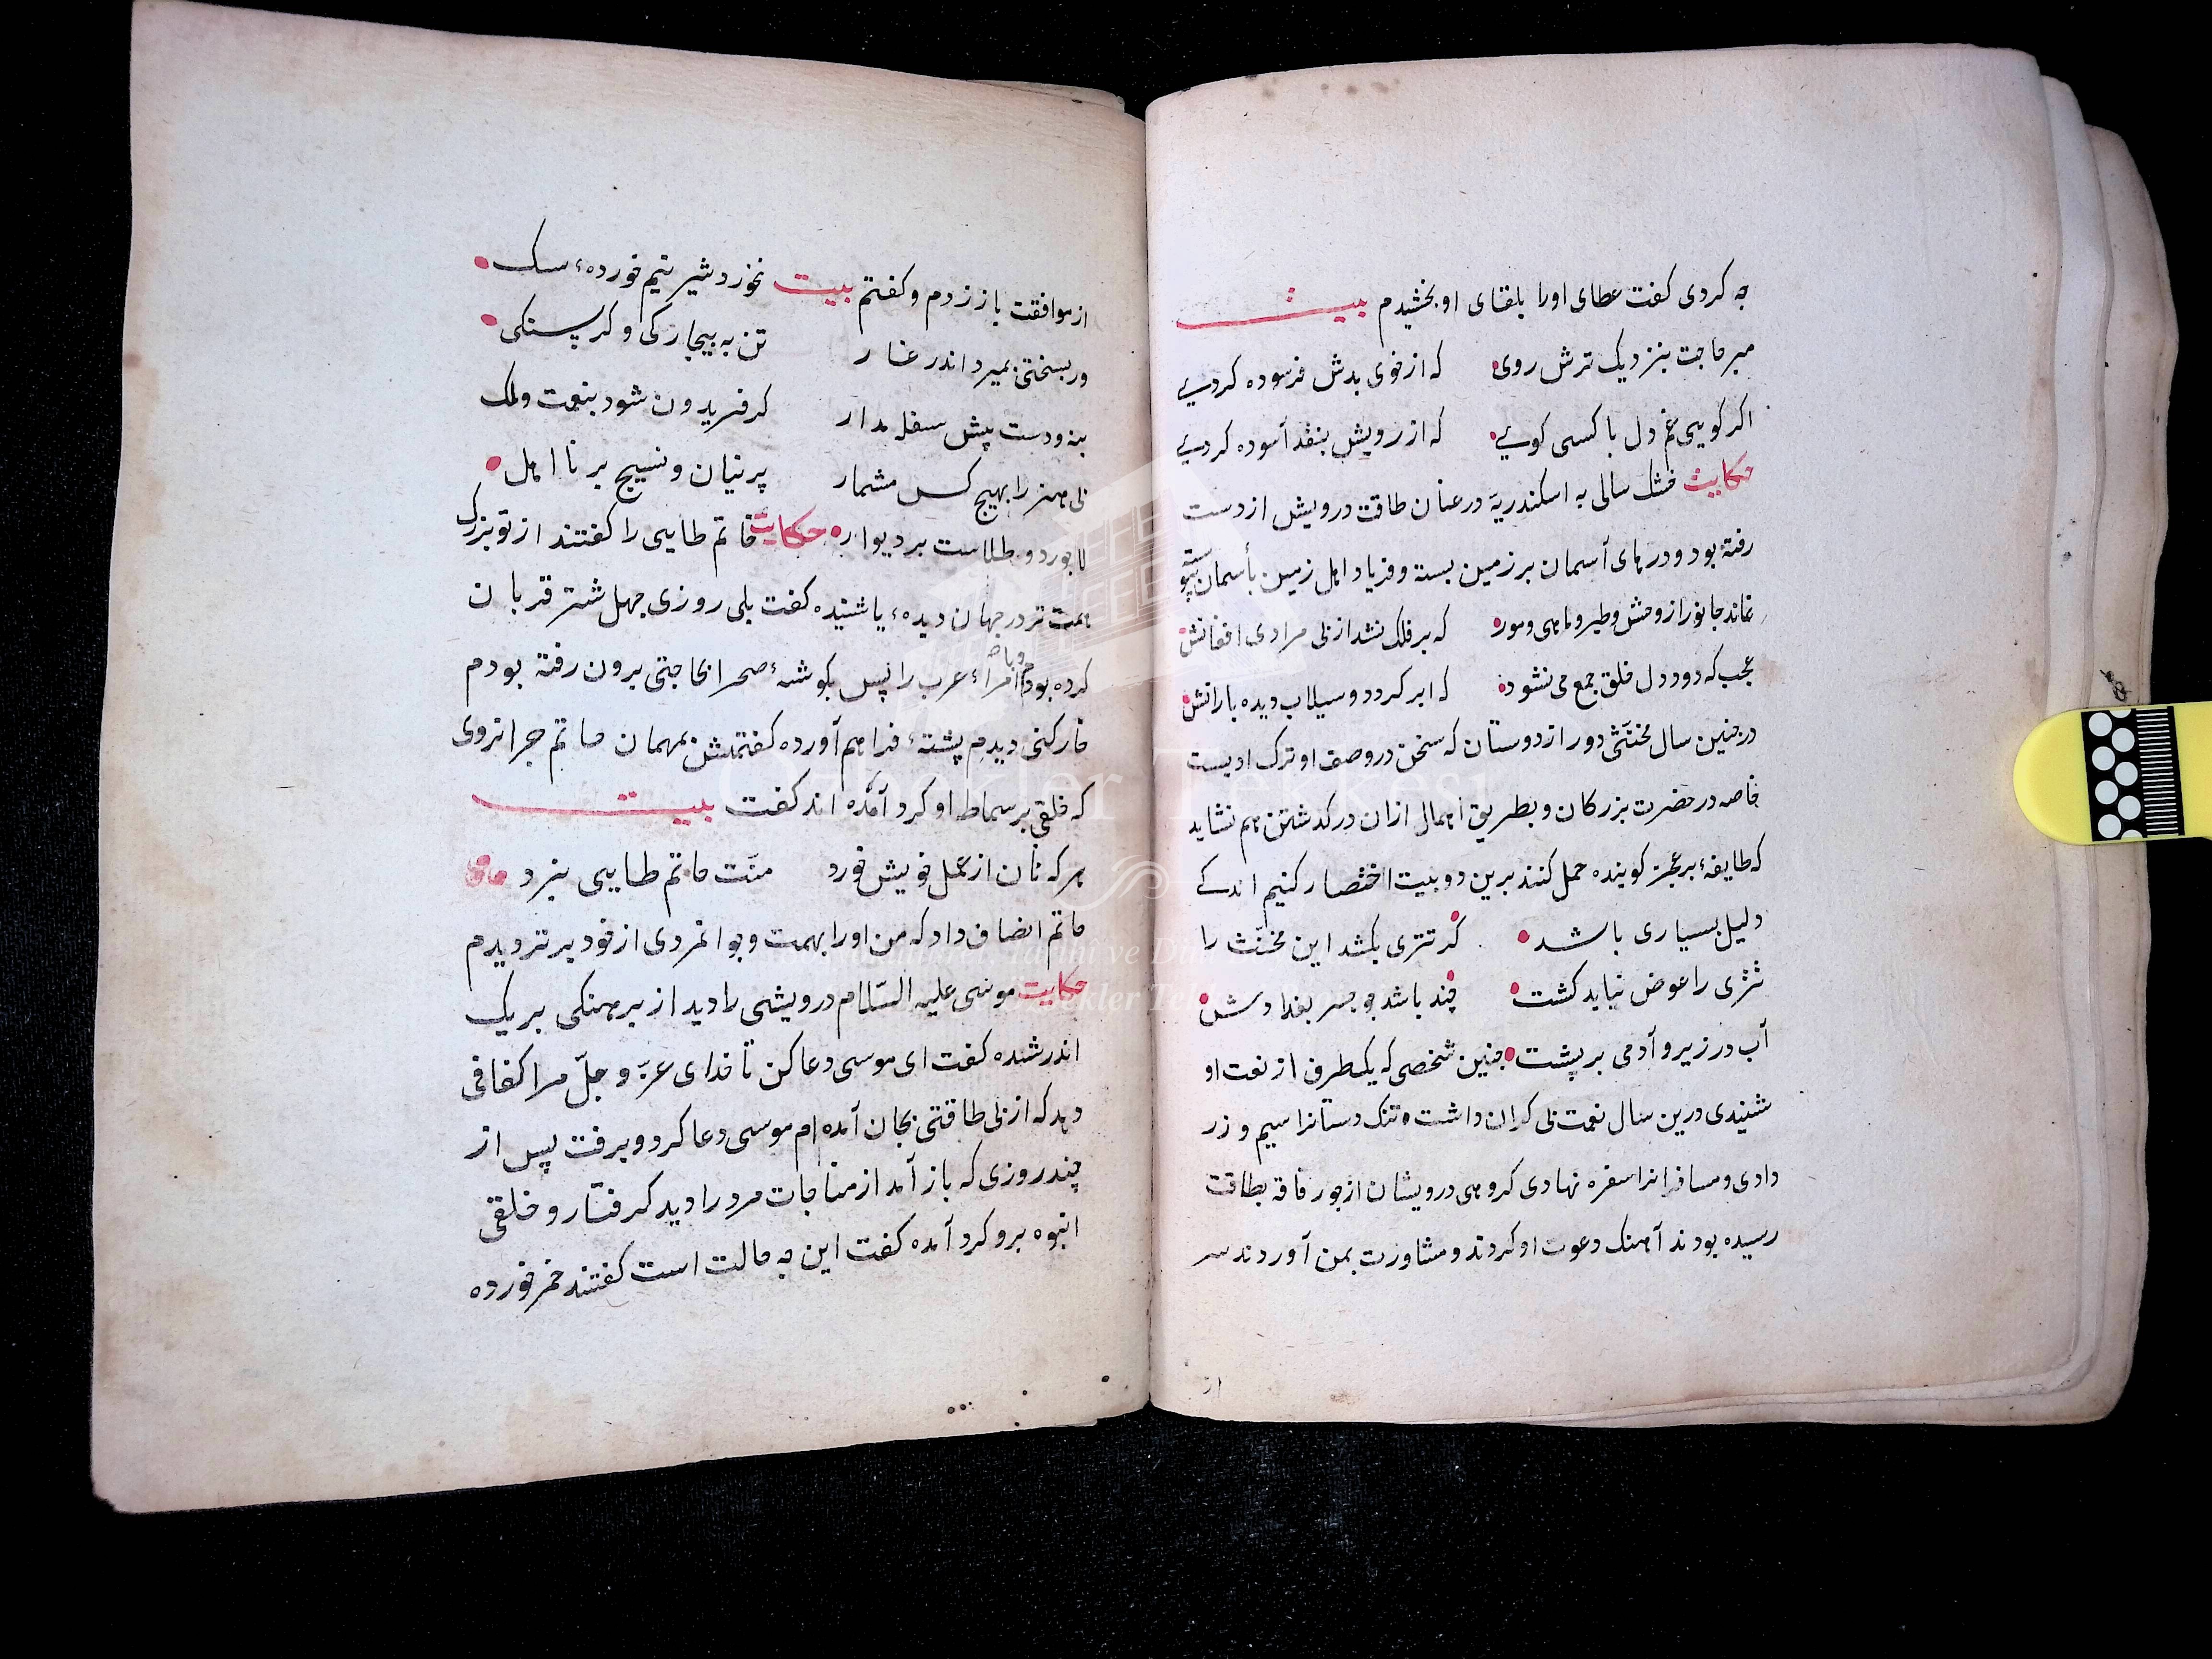 چه کردی کفت عطای اورا بلقای او بخشیدم بیت
مبر حاجت بنزدیک ترش روی که از خوی بدش فرسوده کردی
اکر کویی غم دل با کسی کوی که از رویش بنقد آسوده کردی
حکایت خشک سالی به اسکندریه در عنان طاقت درویش از دست
رفته بود و درهای آسمان بر زمین بسته و فریاد اهل زمین بأسمان پیوسته
نماند جانور از وحش وطیر و ماهی ومور که بر فلک نشد از بی مرادی افغانش
عجب که دود دل خلق جمع می نشود که ابر کردد و سیلاب دیده بارانش
در جنین سال مخنثی دور از دوستان که سخن در وصف او ترک ادبست
خاصه در حضرت بزرکان و بطریق اهمال ازان در کدشتن هم نشاید
که طایفۀ بر عجز کوینده حمل کنند برین دو بیت اختصار کنیم اندکے
دلیل بسیاری باشد کر تتری بکشد این مخنّث را
تتری را عوض نباید کشت چند باشد چو جسر بغدادش
آب در زیر و آدمی بر پشت جنین شخصی که یکطرف از نعت او
شنیدی درین سال نعمت بی کران داشت تنک دستانرا سیم و زر
دادی و مسافرانرا سفره نهادی کروهی درویشان از جور فاقه بطاقت
رسیده بودند آهنک دعوت او کردند و مشاورت بمن آوردند سر
از
از موافقت باز زدم و کفتم بیت نخورد شیر نیم خوردهٔ سک
ور بسختی بمیرد اندر غار تن به بیچارکی و کرسنکی
بنه و دست پیش سفله مدار کر فریدون شود بنعمت و ملک
بی هنر را بهیج کس مشمار پرنیان و نسیج بر نااهل
لاجورد و طلاست بر دیوار حکایت حاتم طایی را کفتند از تو بزرک
همت تر در جهان دیدهٔ یا شنیده کفت بلی روزی جهل شتر قربان
کرده بودم امراء عرب را پس بکوشهٔ صحرا بحاجتی برون رفته بودم
خارکنی دیدم پشتهٔ فراهم آورده کفتمش بمهمان حاتم جرا نروی
که خلقی بر سماط او کرد آمده اند کفت بیت
هر که نان از عمل خویش خورد منّت حاتم طایی نبرد
حاتم انصاف داد که من اورا بهمت و جوانمردی از خود برتر دیدم
حکایت موسی علیه السّلام درویشی را دید از برهنکی بریک
اندر شده کفت ای موسی دعا کن تا خدای عزّ و جلّ مرا کفافی
دهد که از بی طاقتی بجان آمده ام موسی دعا کرد و برفت پس از
چند روزی که باز آمد از مناجات مرد را دید کرفتار و خلقی
انبوه برو کرد آمده کفت این چه حالت است کفتند خمر خورده